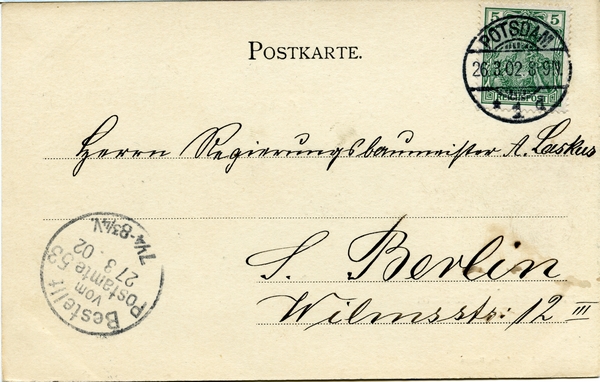 POSTKARTE.
5 5
REICHSPOST
POTSDAM
26.3.02 8-9N
* 1 d
Herrn Regierungsbaumeister A. Laskus
S. Berlin
Wilmsstr: 12 III
Bestellt
vom
Postamte 53
27 3. 02
7¼-8¾V.